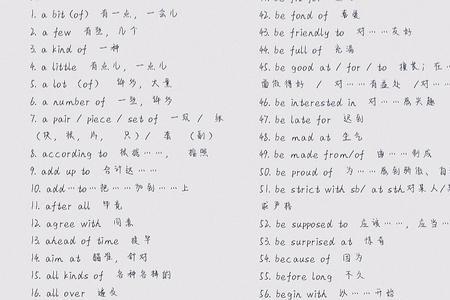 1. a bit (of) 有一点，一会儿
2. a few 有些，几个
3. a kind of 一种
4. a little 有点儿，一点儿
5. a lot (of) 许多，大量
6. a number of 一些，许多
7. a pair / piece / set of 一双 /
8. according to 根据……，按照
9. add up to 合计达……
10. add…to…把……加到……上
11. after all 毕竟
12. agree with 同意
13. ahead of time 提早
14. aim at 瞄准，针对
15. all kinds of 各种各样的
16. all over 遍及
42. be fond of 喜爱
43. be friendly to 对……友好
44. be full of 充满
45. be good at / for / to 擅长；在…
面做得好 / 对……有益处 /对…
46. be interested in 对……感兴趣
47. be late for 迟到
48. be mad at 生气
49. be made from/of 由……制成
50. be proud of 为……感到骄傲、自
51. be strict with sb/ at sth对某人/
求严格
52. be supposed to 应该……，应当…
53. be surprised at 惊奇
54. because of 因为
55. before long 不久
56. begin with 以……开始